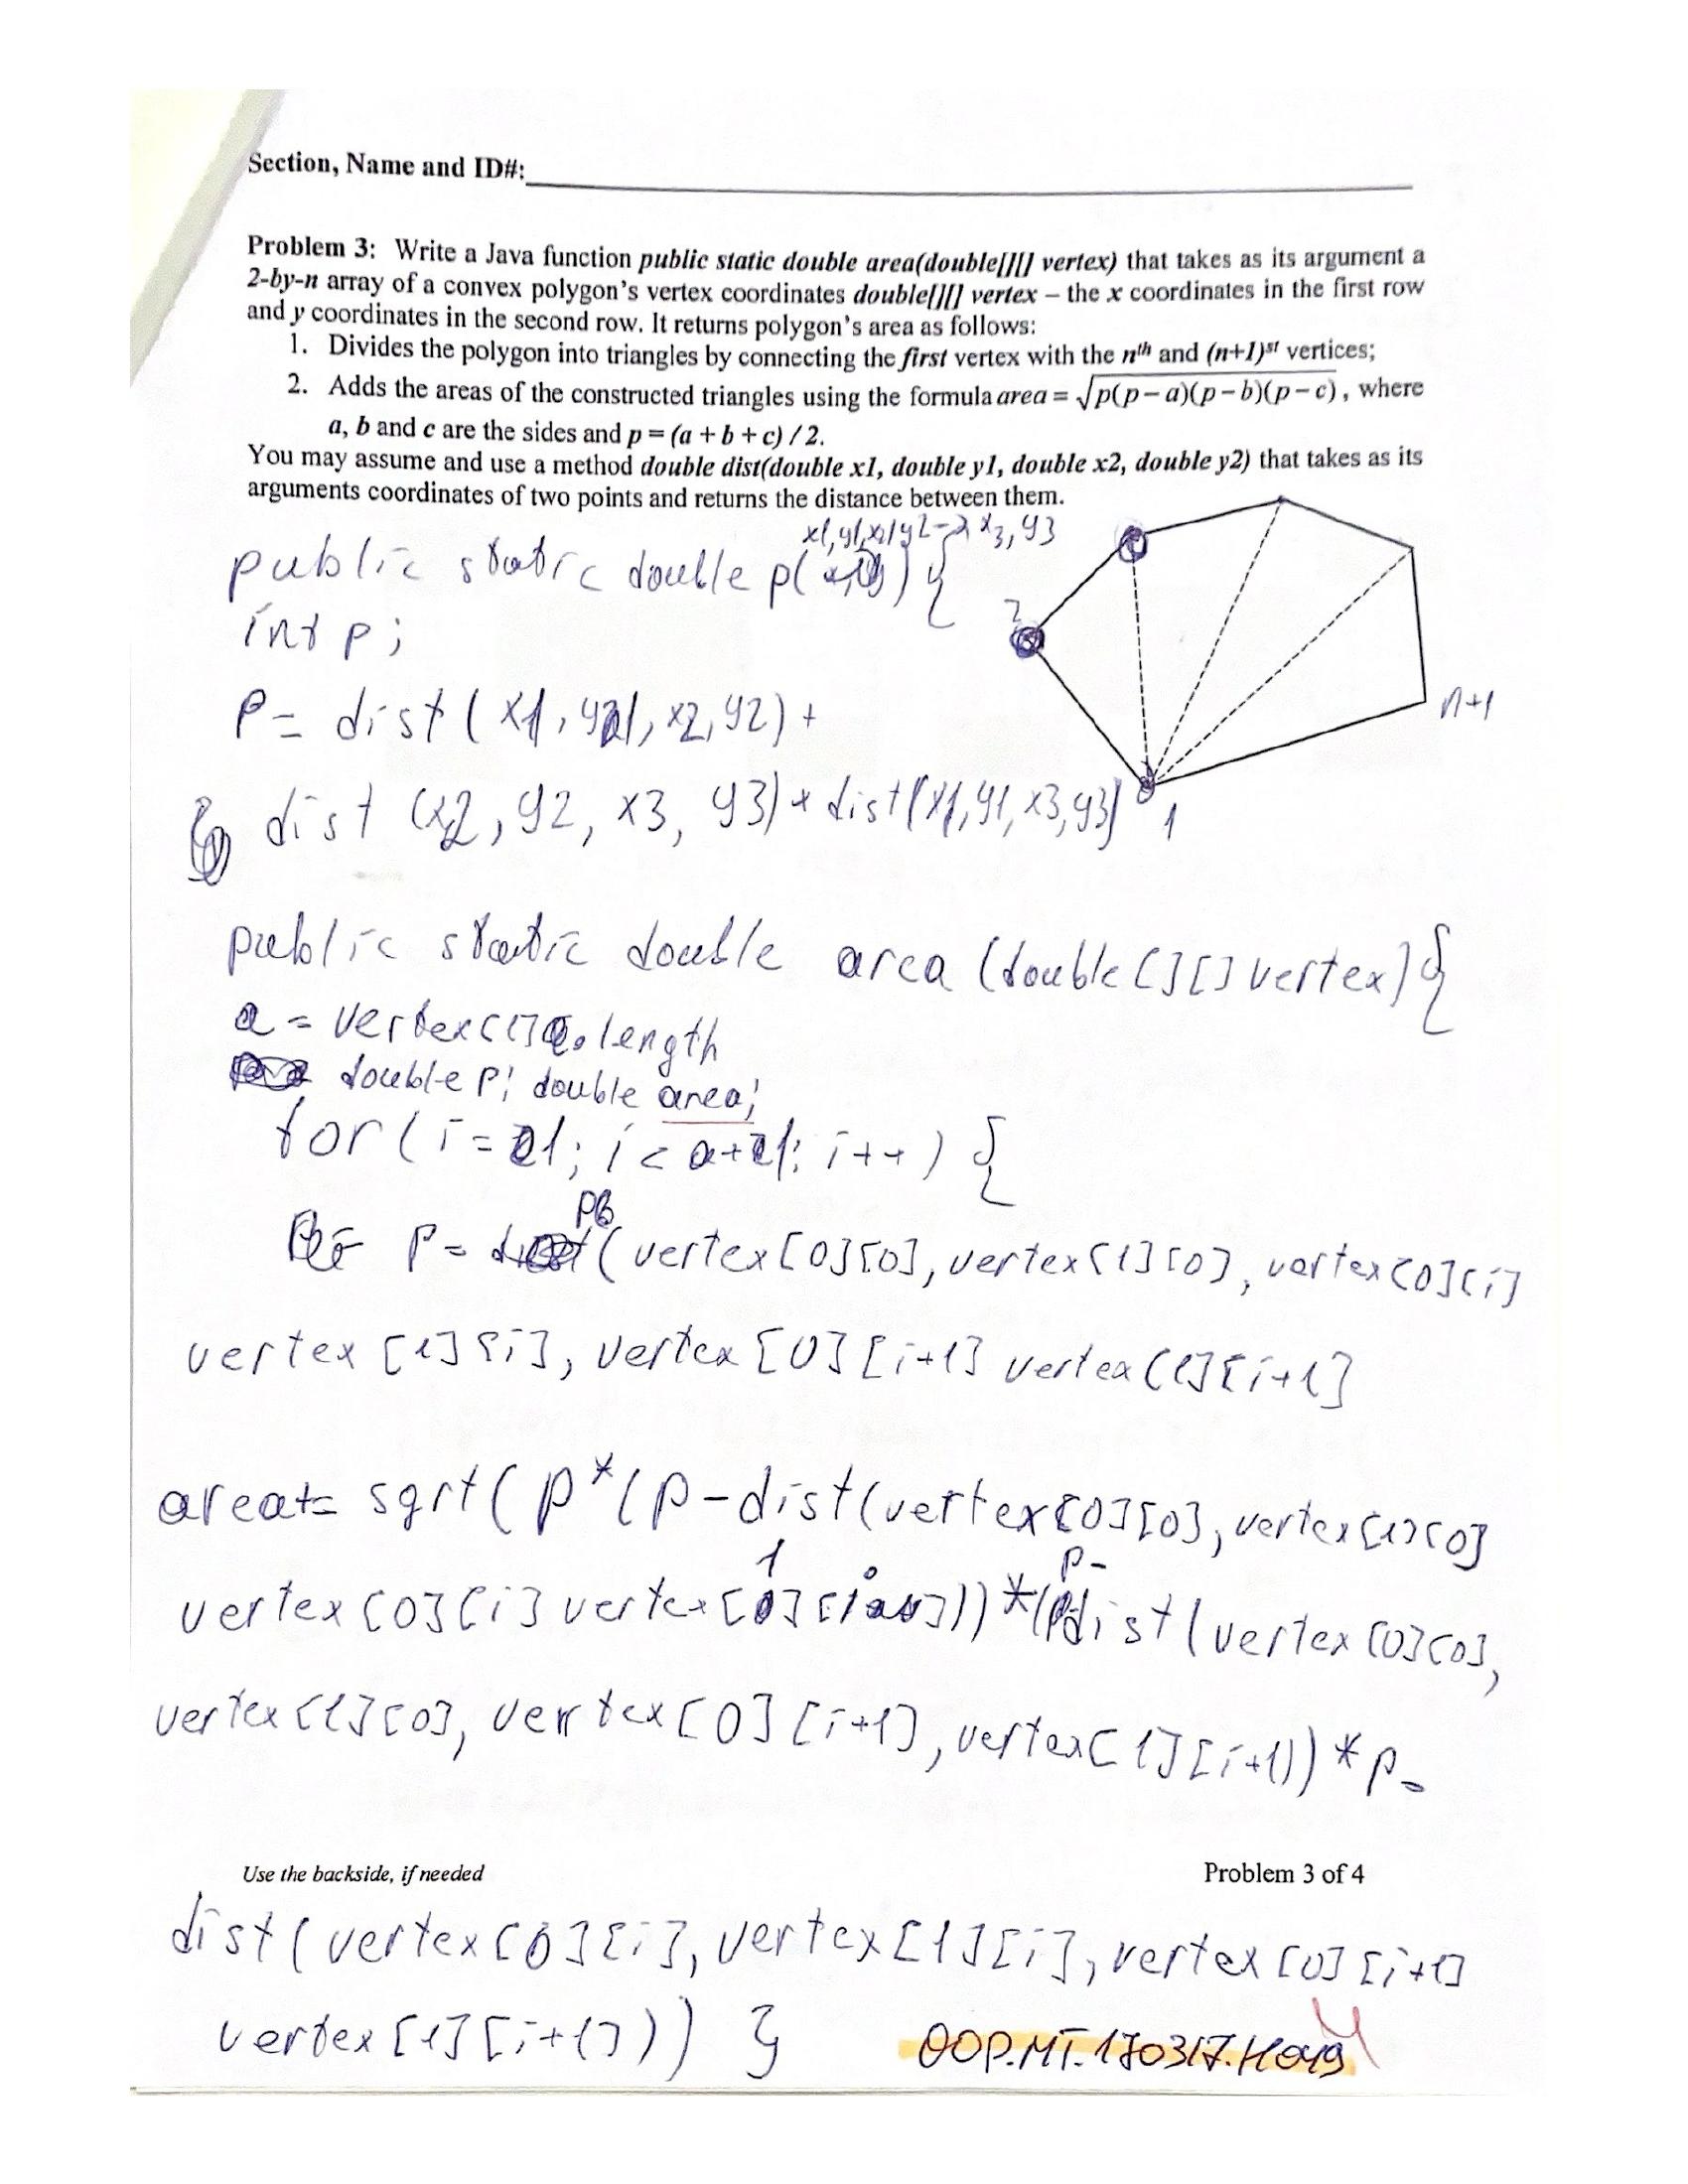 Section, Name and ID#:
Problem 3: Write a Java function public static double area(double[][] vertex) that takes as its argument a
2-by-n array of a convex polygon's vertex coordinates double[][] vertex – the x coordinates in the first row
and y coordinates in the second row. It returns polygon's area as follows:
1. Divides the polygon into triangles by connecting the first vertex with the nth and (n+1)st vertices;
2. Adds the areas of the constructed triangles using the formula area = √p(p−a)(p−b)(p−c), where
a, b and c are the sides and p = (a + b + c) / 2.
You may assume and use a method double dist(double x1, double y1, double x2, double y2) that takes as its
arguments coordinates of two points and returns the distance between them.
x1,y1,x2,y2 x3,y3
public static double p( ) {
int p;
2
P= dist (x1,y1,x2,y2)+
n+1
dist (x2,y2,x3,y3)+dist(x1,y1,x3,y3)
1
public static double area (double[][] vertex){
a = vertex[1].length
double P; double area;
for(i=1; i<a+1; i++) {
P= (vertex[0][0],vertex[1][0],vertex[0][i]
vertex [1][i], vertex [0][i+1] vertex[1][i+1]
area+= sqrt(p*(p-dist(vertex[0][0],vertex[1][0]
vertex[0][i] vertex[1][i]))*(p-dist(vertex[0][0],
vertex[1][0], vertex[0][i+1],vertex[1][i+1))*p-
Use the backside, if needed
Problem 3 of 4
dist(vertex[0][i],vertex[1][i],vertex[0][i+1]
vertex[1][i+1])) }
OOP.MT.170317.H049